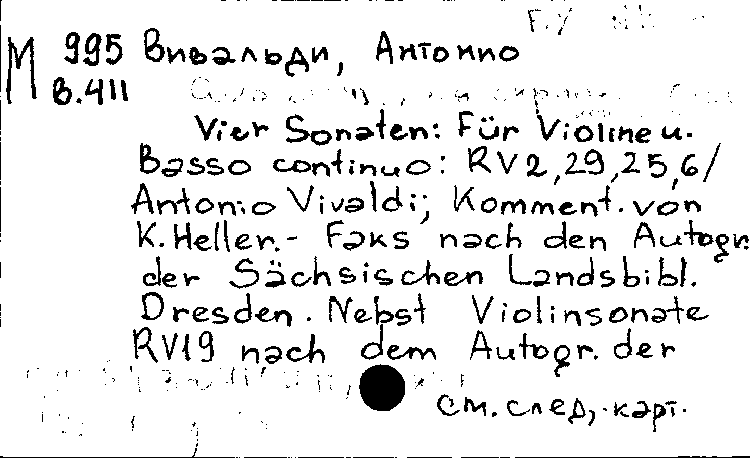 М 995 Вивальди, Антонио
В.411
Vier Sonaten: Für Violine u.
Basso continuo: RV2,29,25,6/
Antonio Vivaldi; Komment. von
K. Heller.- Faks nach den Autogr.
der Sächsischen Landsbibl.
Dresden. Nebst Violinsonate
RV19 nach dem Autogr. der
см. след, карт.